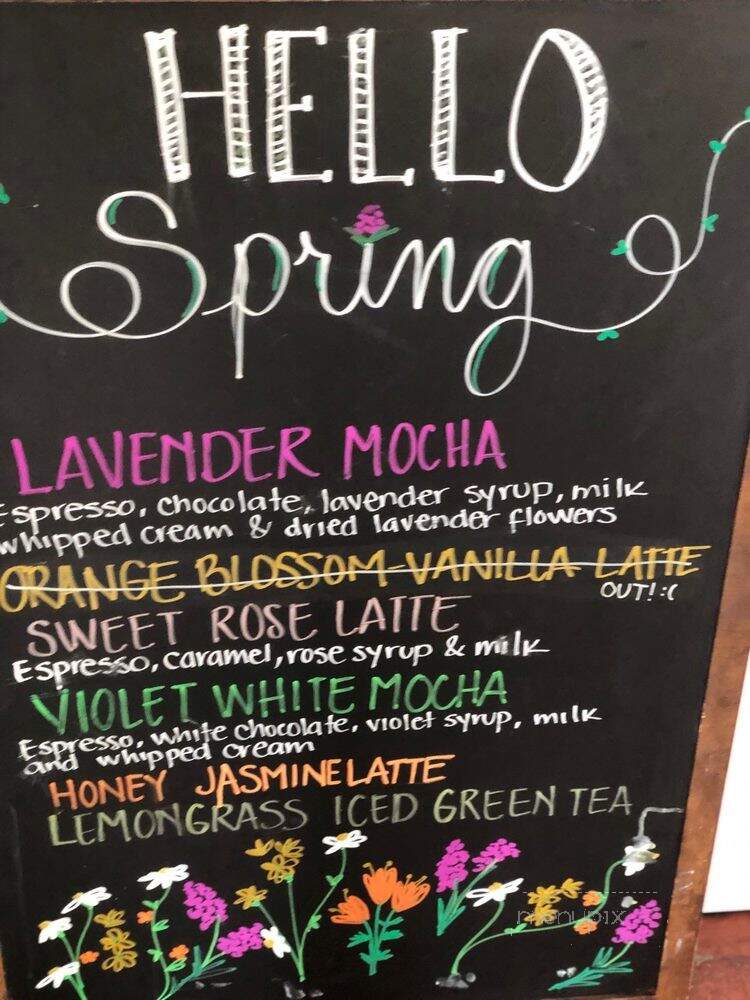 HELLO
Spring
LAVENDER MOCHA
Espresso, chocolate, lavender syrup, milk
whipped cream & dried lavender flowers
ORANGE BLOSSOM-VANILLA LATTE
OUT! :(
SWEET ROSE LATTE
Espresso, caramel, rose syrup & milk
VIOLET WHITE MOCHA
Espresso, white chocolate, violet syrup, milk
and whipped cream
HONEY JASMINE LATTE
LEMONGRASS ICED GREEN TEA
menupix